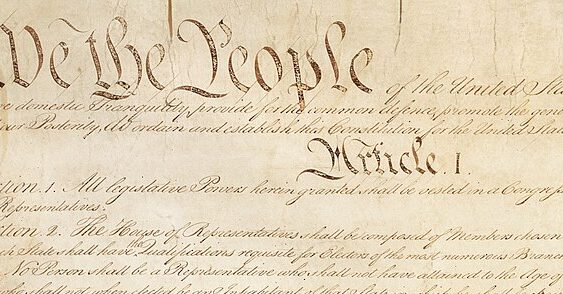 We the People of the United Sta
domestic Tranquility, provide for the common defence, promote the gene
our Posterity, do ordain and establish this Constitution for the United Stat
Article. I.
ction. 1. All legislative Powers herein granted shall be vested in a Congre
Representatives.
ction. 2. The House of Representatives shall be composed of Members chosen
State shall have the Qualifications requisite for Electors of the most numerous Branc
No Person shall be a Representative who shall not have attained to the Age of